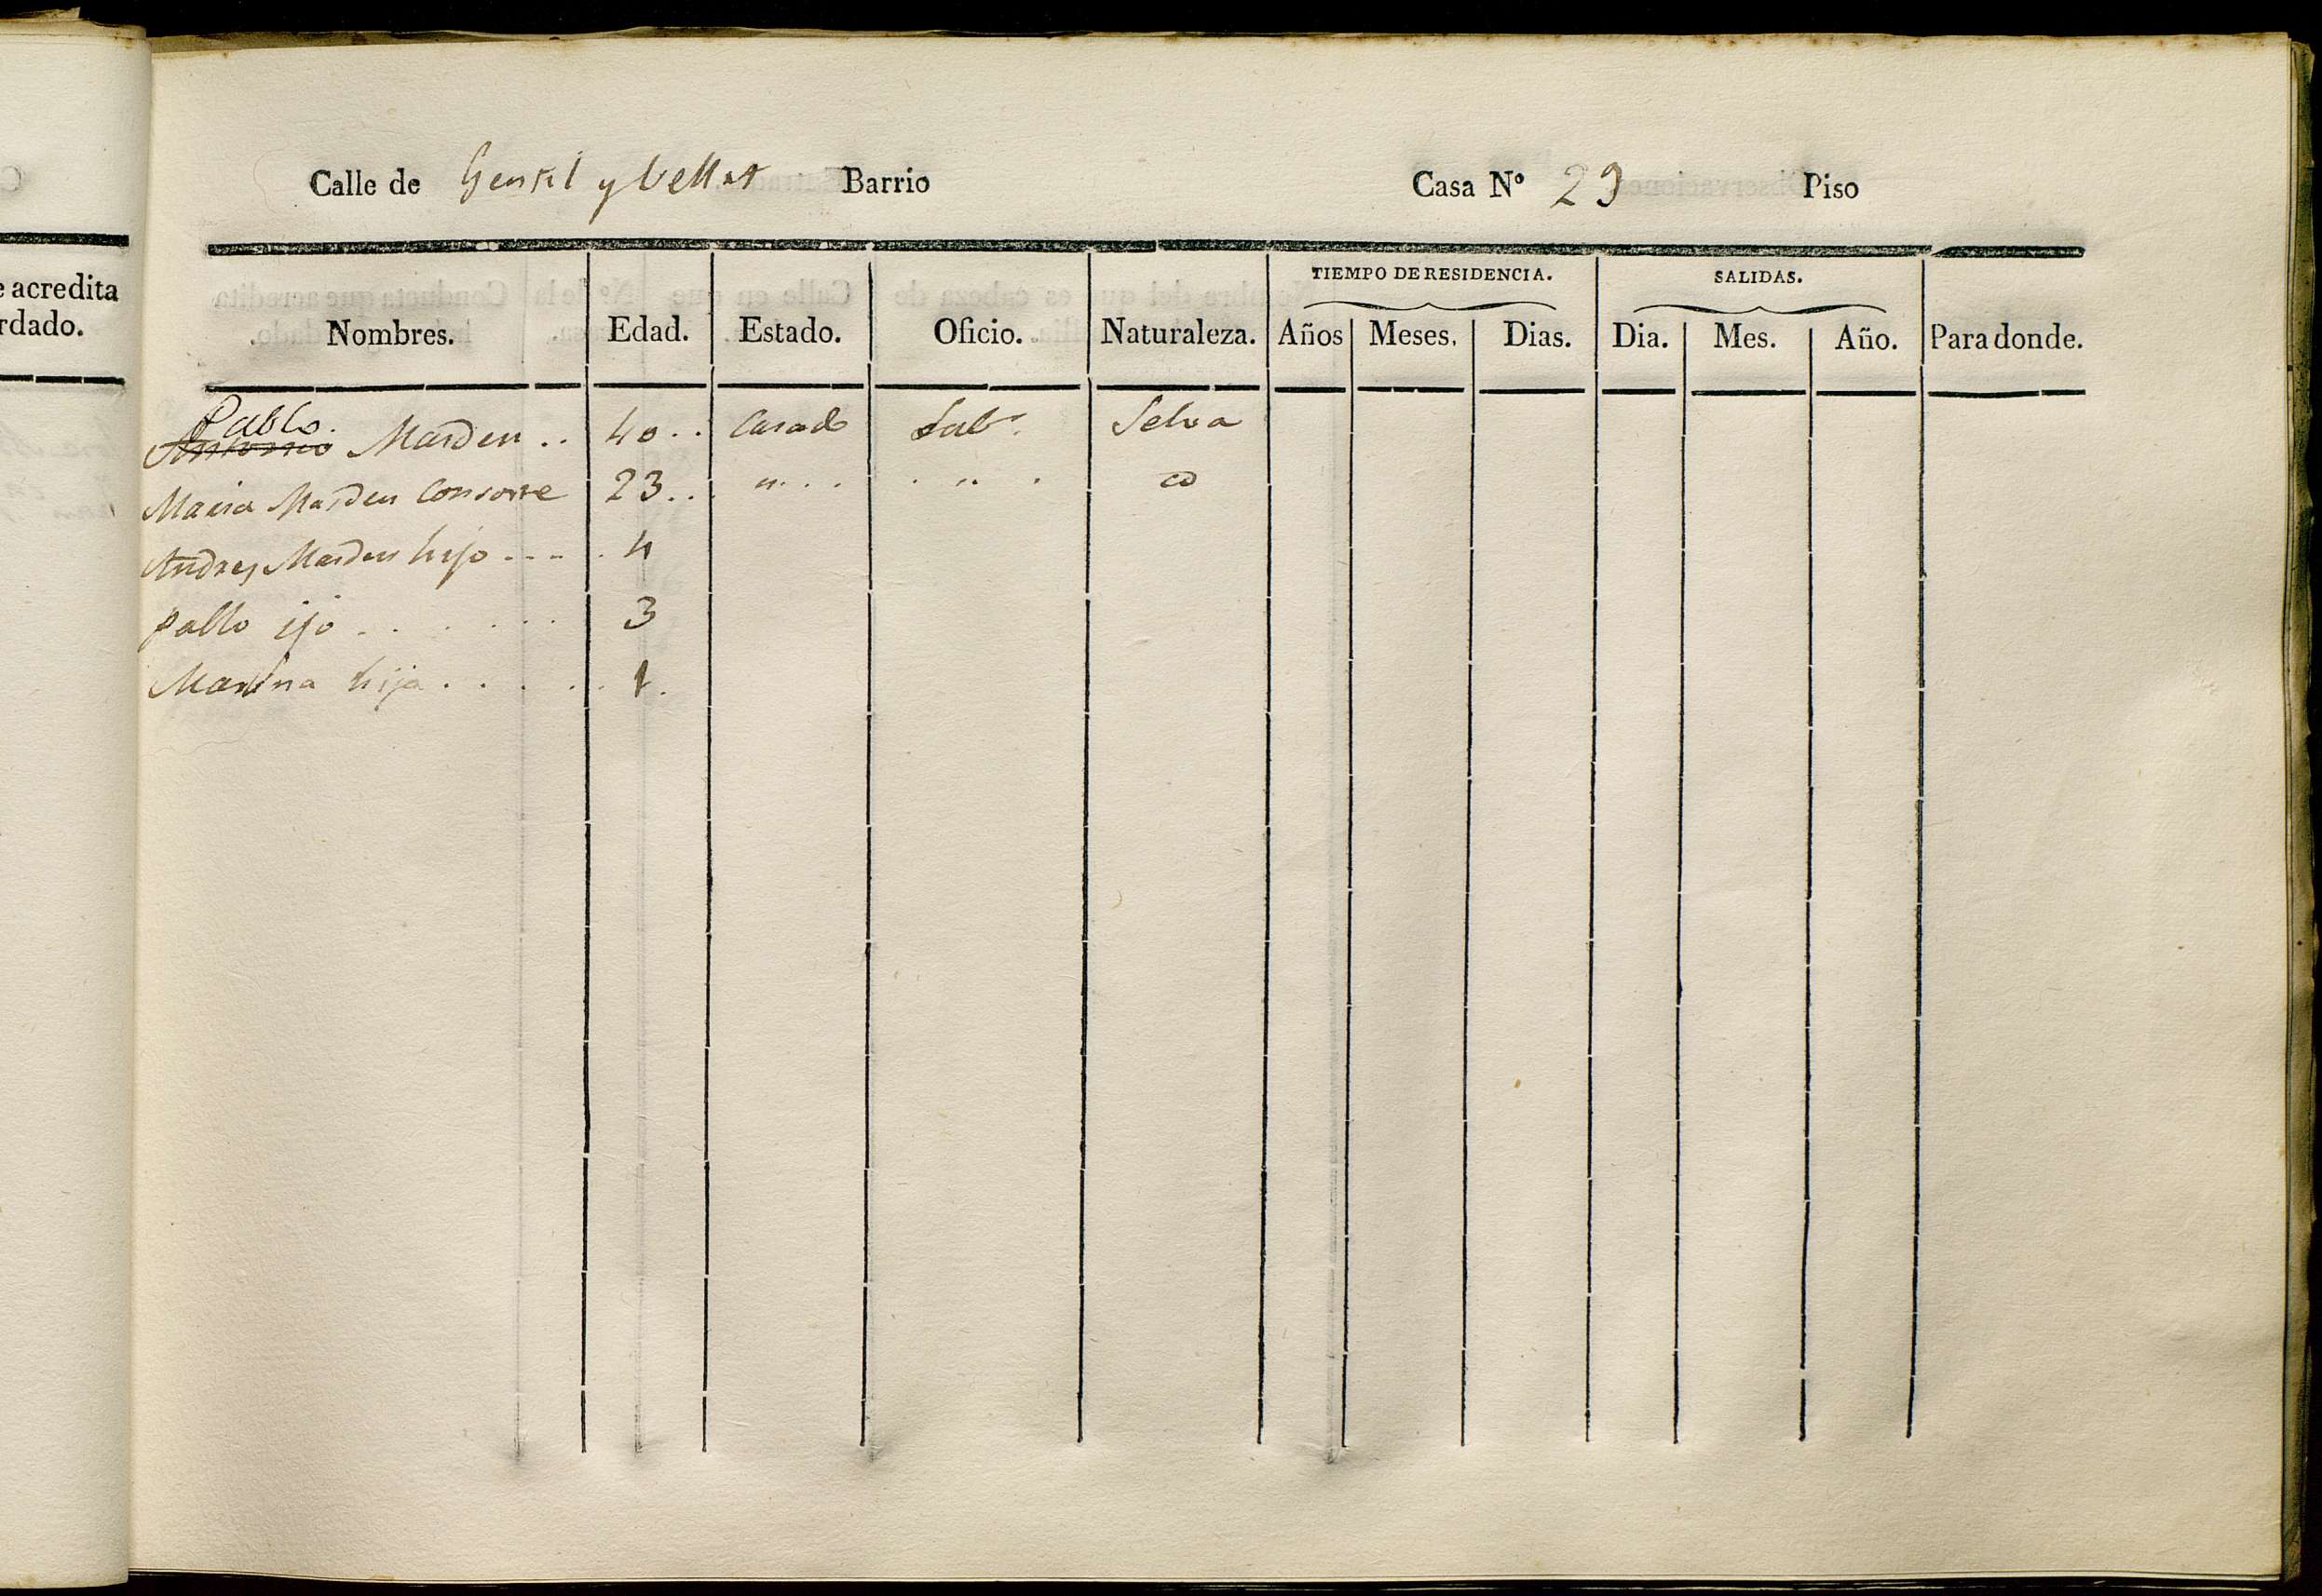 Calle de Gentil y Vellat Barrio Casa Nº 29 Piso
e acredita
rdado.
TIEMPO DE RESIDENCIA. SALIDAS.
Nombres. Edad. Estado. Oficio. Naturaleza. Años Meses. Dias. Dia. Mes. Año. Para donde.
Pablo.
Antonio Marden .. 40 .. Casado Labr. Selva
Maria Marden Consorte 23 .. " . . . " . id
Andres Marden hijo - - - . 4
pablo ijo . . . . . . 3
Marina hija . . . . . 1.